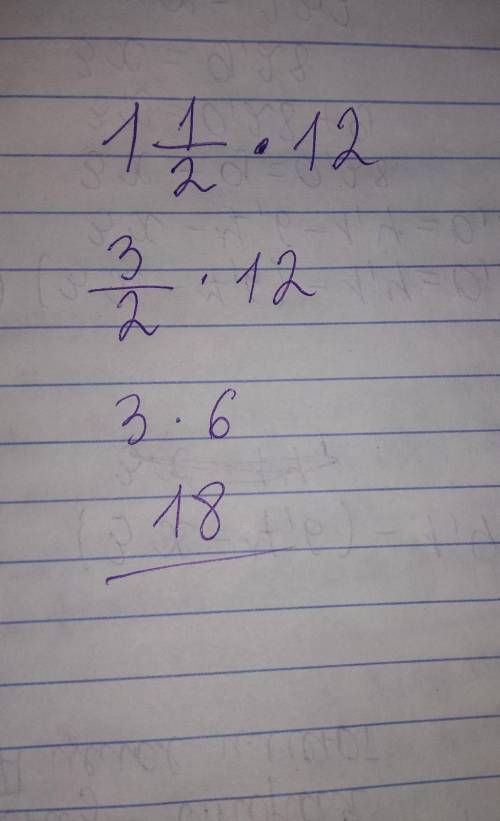 1 1/2 · 12
3/2 · 12
3 · 6
18